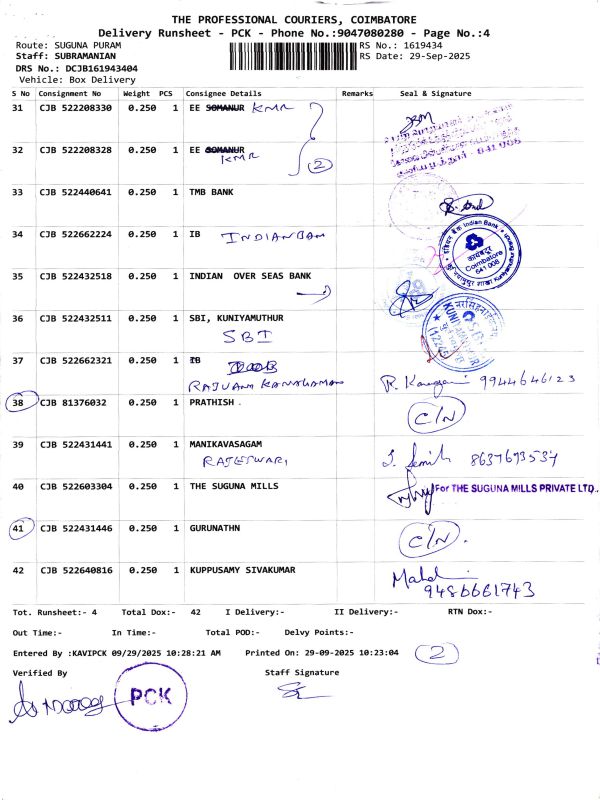 THE PROFESSIONAL COURIERS, COIMBATORE
Delivery Runsheet - PCK - Phone No.:9047080280 - Page No.:4
Route: SUGUNA PURAM RS No.: 1619434
Staff: SUBRAMANIAN RS Date: 29-Sep-2025
DRS No.: DCJB161943404
Vehicle: Box Delivery
S No Consignment No Weight PCS Consignee Details Remarks Seal & Signature
31 CJB 522208330 0.250 1 EE SOMANUR KMR
32 CJB 522208328 0.250 1 EE SOMANUR
KMR 2
641 008
33 CJB 522440641 0.250 1 TMB BANK
34 CJB 522662224 0.250 1 IB INDIAN BANK
Indian Bank
कोयम्बटूर
Coimbatore
641 008
35 CJB 522432518 0.250 1 INDIAN OVER SEAS BANK
36 CJB 522432511 0.250 1 SBI, KUNIYAMUTHUR
SBI
37 CJB 522662321 0.250 1 IB
R. 9944646123
38 CJB 81376032 0.250 1 PRATHISH .
C/N
39 CJB 522431441 0.250 1 MANIKAVASAGAM
RAJESWARI 8637693534
40 CJB 522603304 0.250 1 THE SUGUNA MILLS For THE SUGUNA MILLS PRIVATE LTD.,
41 CJB 522431446 0.250 1 GURUNATHN C/N.
42 CJB 522640816 0.250 1 KUPPUSAMY SIVAKUMAR
9486661743
Tot. Runsheet:- 4 Total Dox:- 42 I Delivery:- II Delivery:- RTN Dox:-
Out Time:- In Time:- Total POD:- Delvy Points:-
Entered By :KAVIPCK 09/29/2025 10:28:21 AM Printed On: 29-09-2025 10:23:04 2
Verified By Staff Signature
PCK